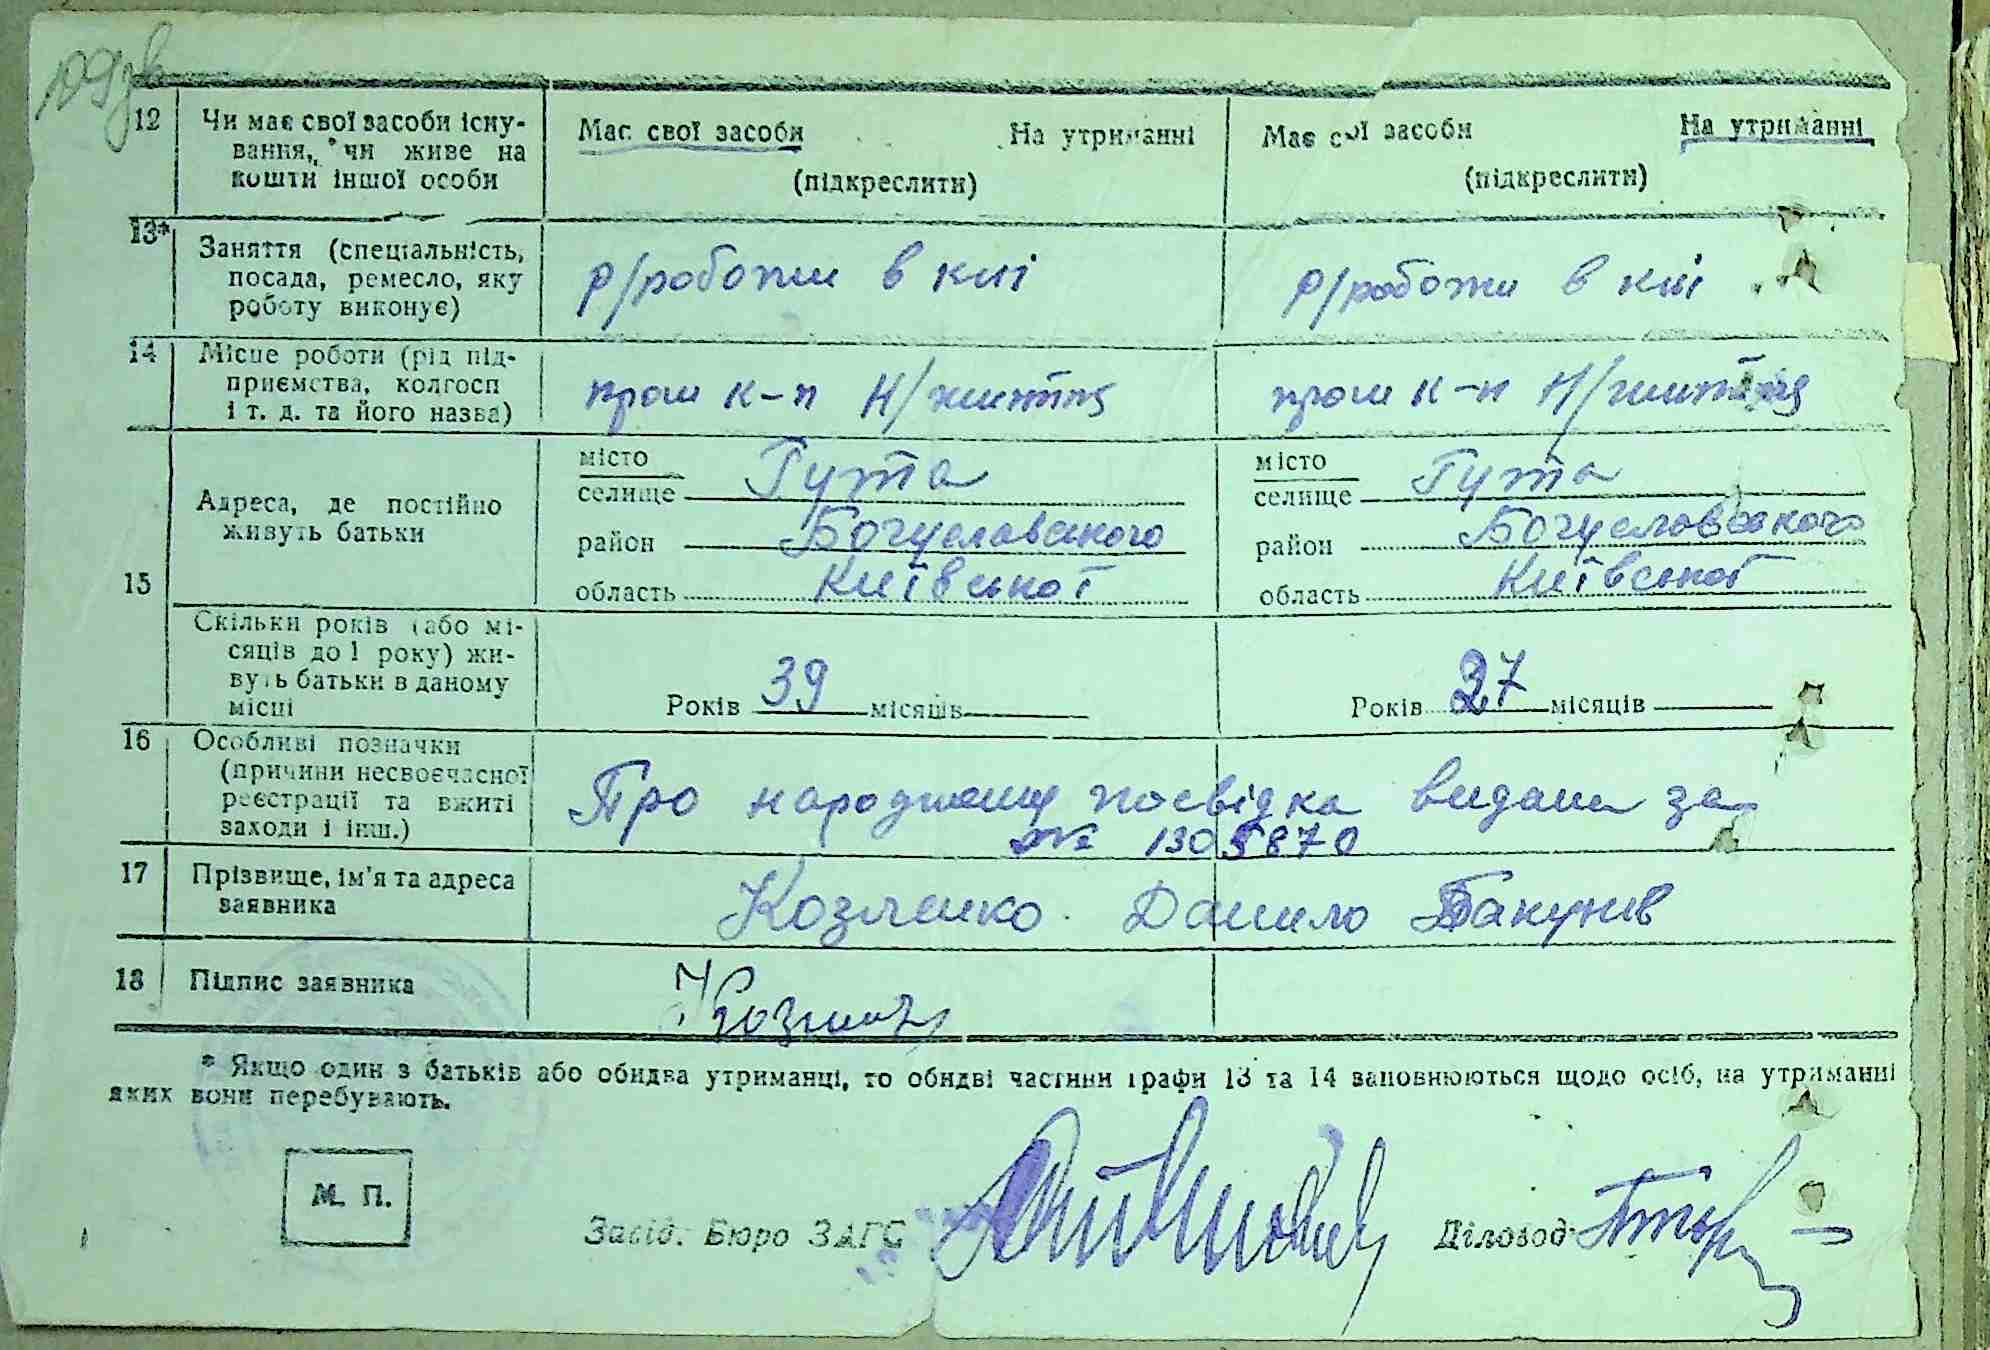 109 зв
12 Чи має свої засоби існу-
вання, чи живе на
кошти іншої особи
Має свої засоби На утриманні
(підкреслити)
Має свої засоби На утриманні
(підкреслити)
13* Заняття (спеціальність,
посада, ремесло, яку
роботу виконує)
р/роботи в кмі
р/роботи в кмі
14 Місце роботи (рід під-
приємства, колгосп
і т. д. та його назва)
к-п Н/життя
к-п Н/життя
15 Адреса, де постійно
живуть батьки
місто
селище Гута
район Богуславського
область Київської
місто
селище Гута
район Богуславського
область Київської
Скільки років (або мі-
сяців до 1 року) жи-
вуть батьки в даному
місці
Років 39 місяців
Років 27 місяців
16 Особливі позначки
(причини несвоєчасної
реєстрації та вжиті
заходи і інш.)
Про народження посвідка видана за
№ 1305870
17 Прізвище, ім'я та адреса
заявника
Козленко Данило
18 Підпис заявника
* Якщо один з батьків або обидва утриманці, то обидві частини графи 13 та 14 заповнюються щодо осіб, на утриманні
яких вони перебувають.
М. П.
Завід. Бюро ЗАГС Діловод